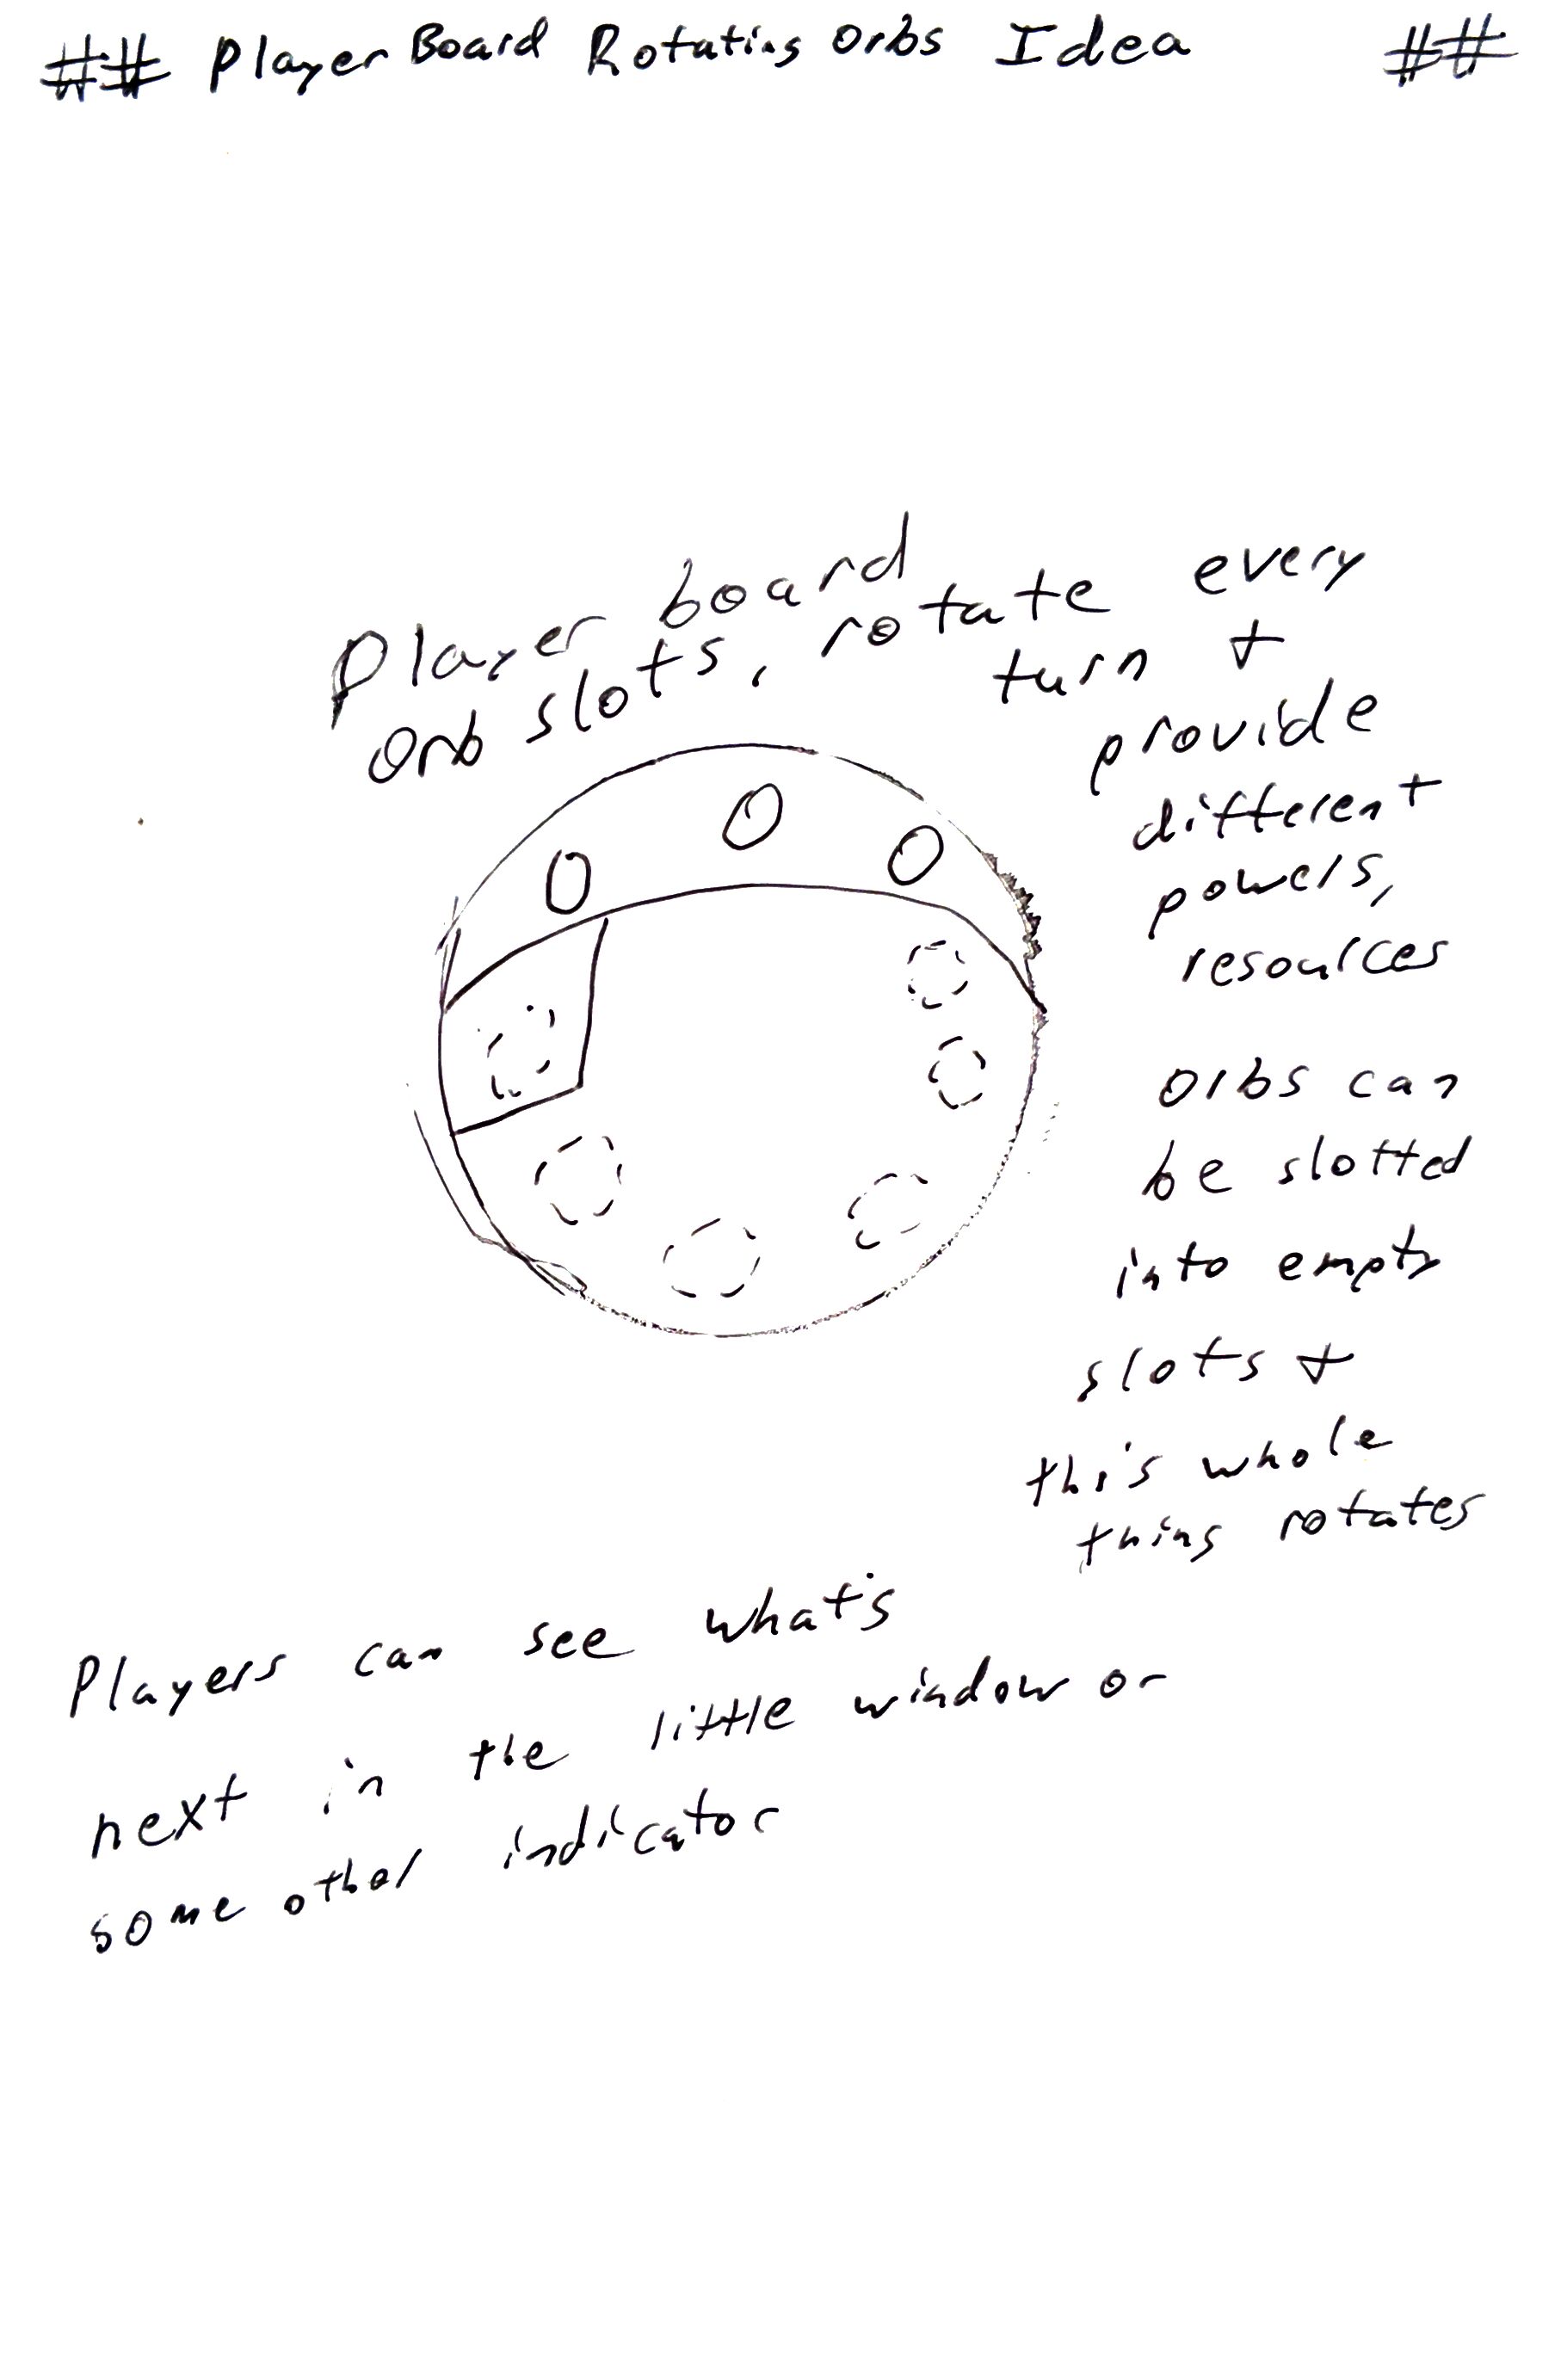 ## Player Board Rotating Orbs Idea ##
Player board
Orb slots, rotate every
turn +
provide
different
powers,
resources
Orbs can
be slotted
into empty
slots +
this whole
thing rotates
Players can see what's
next in the little window or
some other indicator